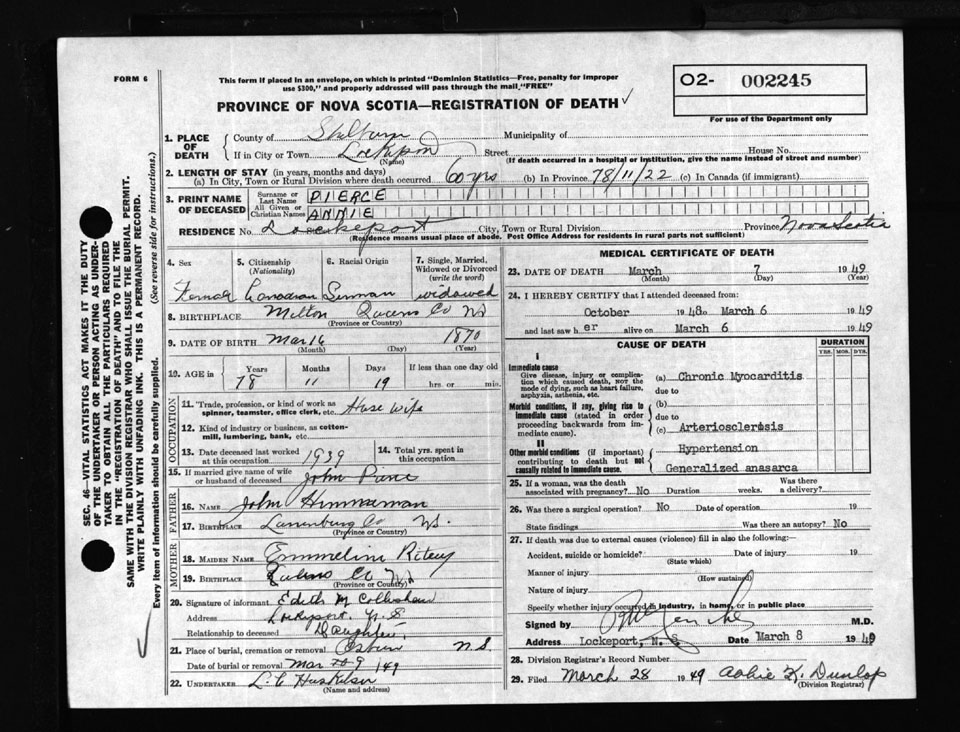 FORM 6
This form if placed in an envelope, on which is printed "Dominion Statistics—Free, penalty for improper
use $300," and properly addressed will pass through the mail "FREE"
PROVINCE OF NOVA SCOTIA—REGISTRATION OF DEATH
O2- 002245
For use of the Department only
1. PLACE OF DEATH
County of Shelburne Municipality of
If in City or Town Lockeport Street House No.
(Name) (If death occurred in a hospital or institution, give the name instead of street and number)
2. LENGTH OF STAY (in years, months and days)
(a) In City, Town or Rural Division where death occurred 60 yrs (b) In Province 78/11/22 (c) In Canada (if immigrant)
3. PRINT NAME OF DECEASED
Surname or Last Name PIERCE
All Given or Christian Names ANNIE
RESIDENCE No. Lockeport City, Town or Rural Division Province Nova Scotia
(Residence means usual place of abode. Post Office Address for residents in rural parts not sufficient)
4. Sex 5. Citizenship (Nationality) 6. Racial Origin 7. Single, Married, Widowed or Divorced (write the word)
Female Canadian German widowed
8. BIRTHPLACE Milton Queens Co NS
(Province or Country)
9. DATE OF BIRTH Mar 16 1870
(Month) (Day) (Year)
10. AGE in Years Months Days If less than one day old
78 11 19 hrs. or min.
OCCUPATION
11. "Trade, profession, or kind of work as spinner, teamster, office clerk, etc. House Wife
12. Kind of industry or business, as cotton-mill, lumbering, bank, etc.
13. Date deceased last worked at this occupation 1939 14. Total yrs. spent in this occupation
15. If married give name of wife or husband of deceased John
FATHER
16. NAME John
17. BIRTHPLACE Lunenburg Co NS.
(Province or Country)
MOTHER
18. MAIDEN NAME Emmeline
19. BIRTHPLACE Co NS
(Province or Country)
20. Signature of informant Edith M
Address Lockeport N.S
Relationship to deceased Daughter
21. Place of burial, cremation or removal N.S.
Date of burial or removal Mar 9 /49
22. UNDERTAKER L. C
(Name and address)
MEDICAL CERTIFICATE OF DEATH
23. DATE OF DEATH March 7 1949
(Month) (Day) (Year)
24. I HEREBY CERTIFY that I attended deceased from:
October 1948 to March 6 1949
and last saw her alive on March 6 1949
CAUSE OF DEATH DURATION
YRS. MOS. DYS.
I
Immediate cause
Give disease, injury or complication which caused death, not the mode of dying, such as heart failure, asphyxia, asthenia, etc.
(a) Chronic Myocarditis
due to
Morbid conditions, if any, giving rise to immediate cause (stated in order proceeding backwards from immediate cause).
(b)
due to
(c) Arteriosclerosis
II
Other morbid conditions (if important) contributing to death but not causally related to immediate cause.
Hypertension
Generalized anasarca
25. If a woman, was the death associated with pregnancy? No Duration weeks. Was there a delivery?
26. Was there a surgical operation? No Date of operation 19
State findings Was there an autopsy? No
27. If death was due to external causes (violence) fill in also the following:—
Accident, suicide or homicide? Date of injury 19
(State which)
Manner of injury
(How sustained)
Nature of injury
Specify whether injury occurred in industry, in home, or in public place
Signed by M.D.
Address Lockeport, N. S. Date March 8 1949
28. Division Registrar's Record Number
29. Filed March 28 1949 K. Dunlop
(Division Registrar)
SEC. 46—VITAL STATISTICS ACT MAKES IT THE DUTY
OF THE UNDERTAKER OR PERSON ACTING AS UNDER-
TAKER TO OBTAIN ALL THE PARTICULARS REQUIRED
IN THE "REGISTRATION OF DEATH" AND TO FILE THE
SAME WITH THE DIVISION REGISTRAR WHO SHALL ISSUE THE BURIAL PERMIT.
WRITE PLAINLY WITH UNFADING INK. THIS IS A PERMANENT RECORD.
Every item of information should be carefully supplied. (See reverse side for instructions.)